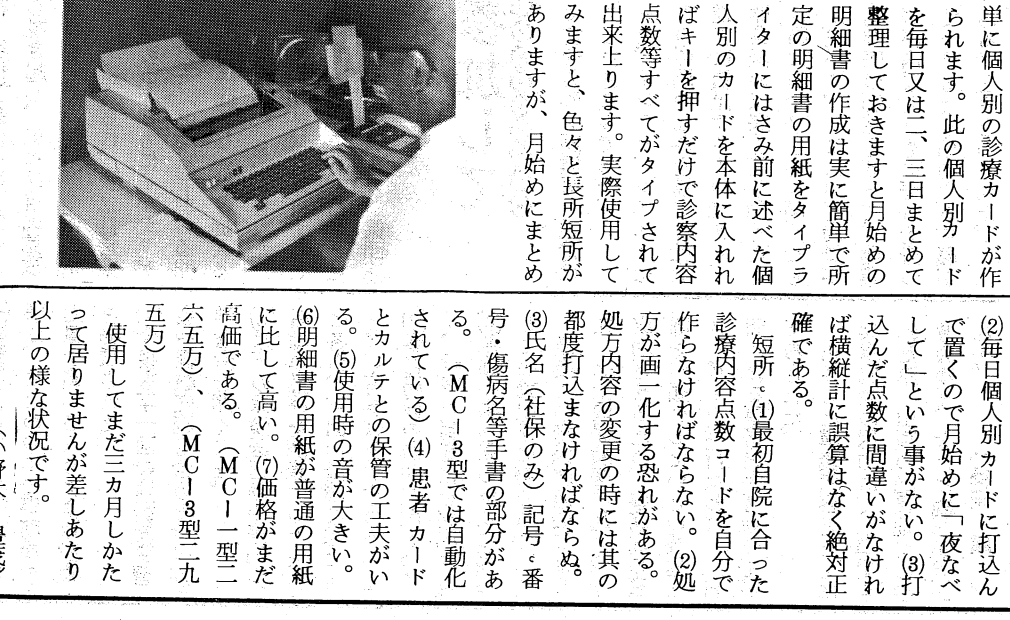 単に個人別の診療カードが作
られます。此の個人別カード
を毎日又は二、三日まとめて
整理しておきますと月始めの
明細書の作成は実に簡単で所
定の明細書の用紙をタイプラ
イターにはさみ前に述べた個
人別のカードを本体に入れれ
ばキーを押すだけで診察内容
点数等すべてがタイプされて
出来上ります。実際使用して
みますと、色々と長所短所が
ありますが、月始めにまとめ
⑵毎日個人別カードに打込ん
で置くので月始めに「夜なべ
して」という事がない。⑶打
込んだ点数に間違いがなけれ
ば横縦計に誤算はなく絶対正
確である。
短所。⑴最初自院に合った
診療内容点数コードを自分で
作らなければならない。⑵処
方が画一化する恐れがある。
処方内容の変更の時には其の
都度打込まなければならぬ。
⑶氏名(社保のみ)記号・番
号・傷病名等手書の部分があ
る。(MC―3型では自動化
されている)⑷患者カード
とカルテとの保管の工夫がい
る。⑸使用時の音が大きい。
⑹明細書の用紙が普通の用紙
に比して高い。⑺価格がまだ
高価である。(MC―一型二
六五万)、(MC―3型二九
五万)
使用してまだ三カ月しかた
って居りませんが差しあたり
以上の様な状況です。